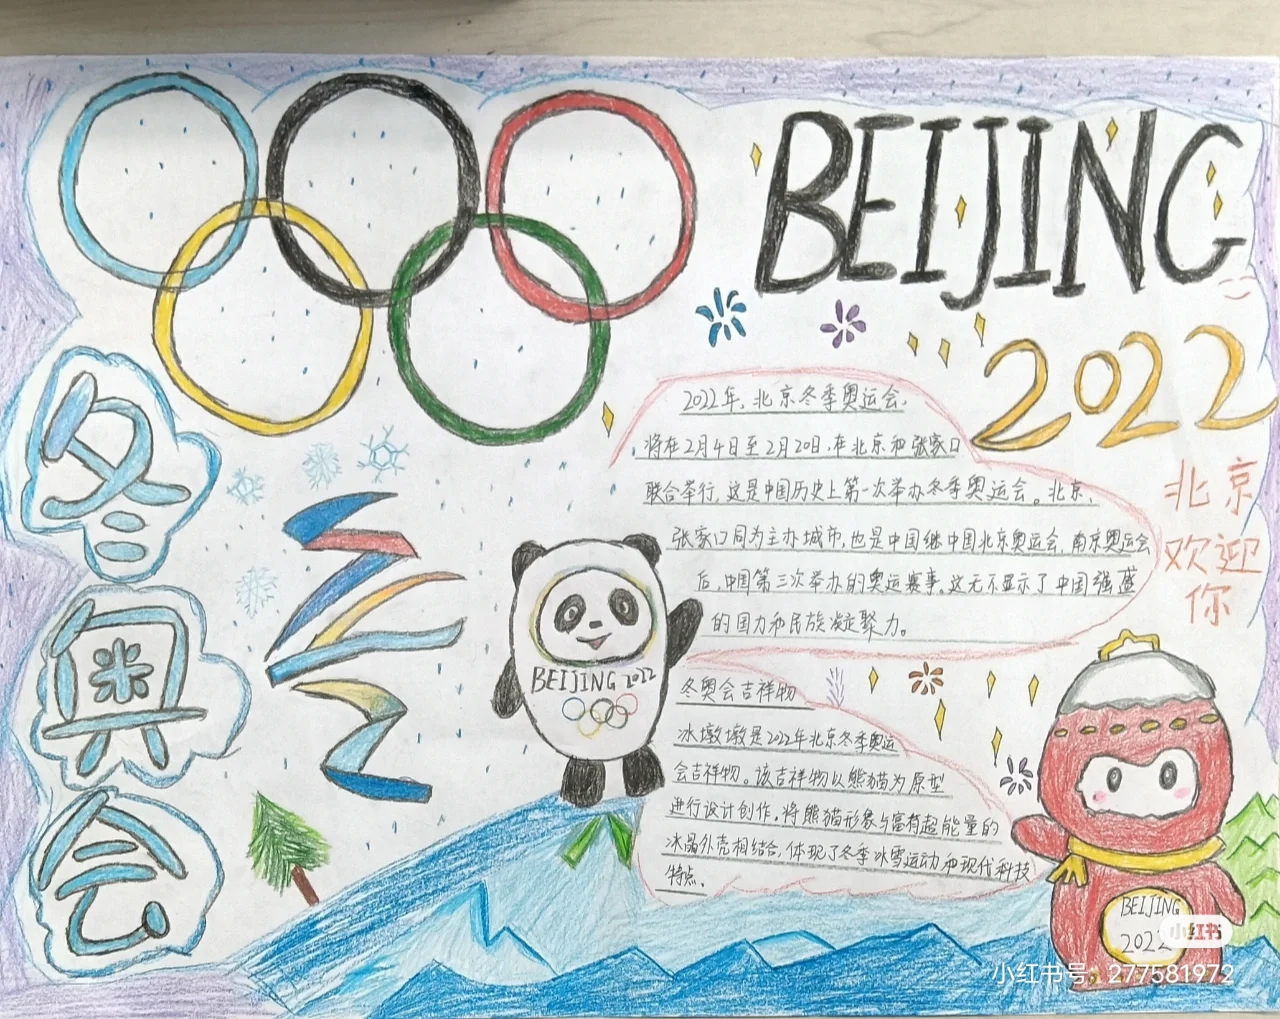 BEIJING
2022
冬
奥
会
北京
欢迎
你
2022年,北京冬季奥运会,
将在2月4日至2月20日,在北京和张家口
联合举行,这是中国历史上第一次举办冬季奥运会。北京、
张家口同为主办城市,也是中国继中国北京奥运会,南京奥运会
后,中国第三次举办的奥运赛事。这无不显示了中国强盛
的国力和民族凝聚力。
BEIJING 2022
冬奥会吉祥物
冰墩墩是2022年北京冬季奥运
会吉祥物。该吉祥物以熊猫为原型
进行设计创作,将熊猫形象与富有超能量的
冰晶外壳相结合,体现了冬季冰雪运动和现代科技
特点。
BEIJING
2022
小红书
小红书号:277581972